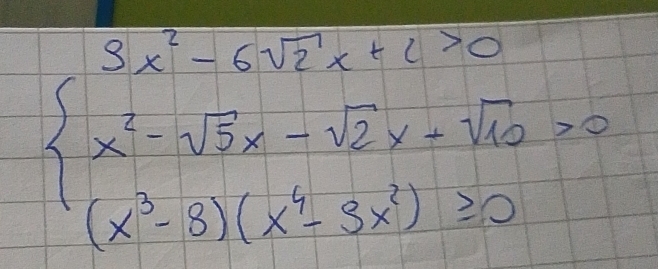 9x² - 6√2x + 2 > 0
x² - √5x - √2x + √10 > 0
(x³ - 8)(x⁴ - 9x²) ≥ 0